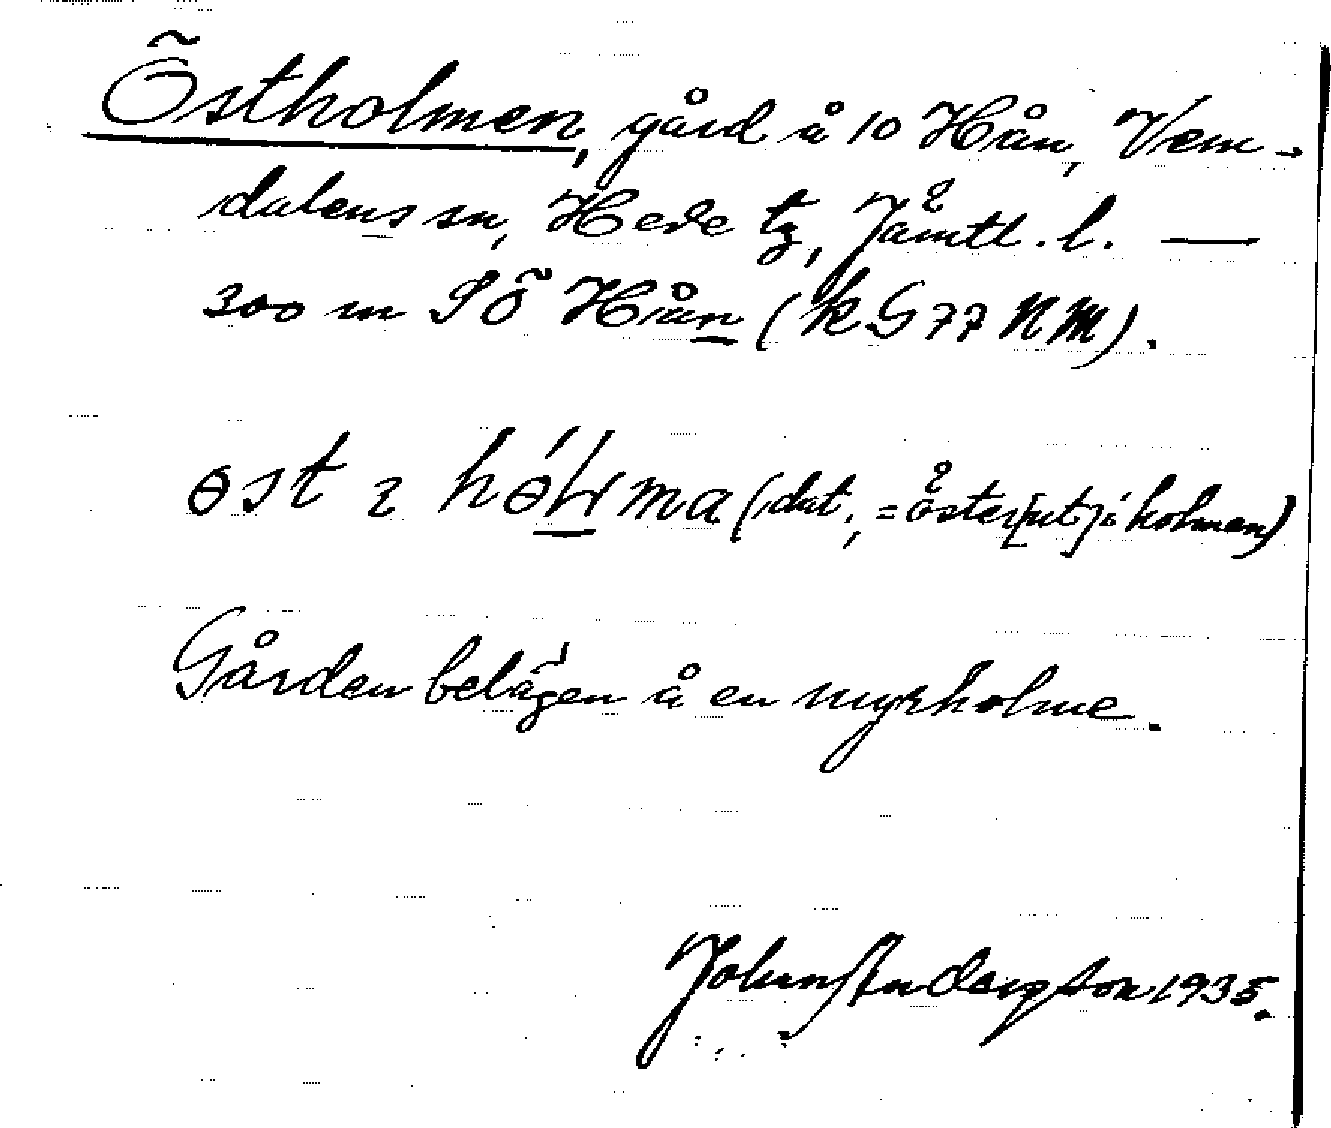 Östholmen, gård å 10 Hån, Vem-
dalens sn, Hede tg, Jämtl. l. —
300 m SÖ Hån (k G 77 NM).
(dat., = öster[ut] i holmen)
Gården belägen å en myrholme.
John Anderssson 1935.